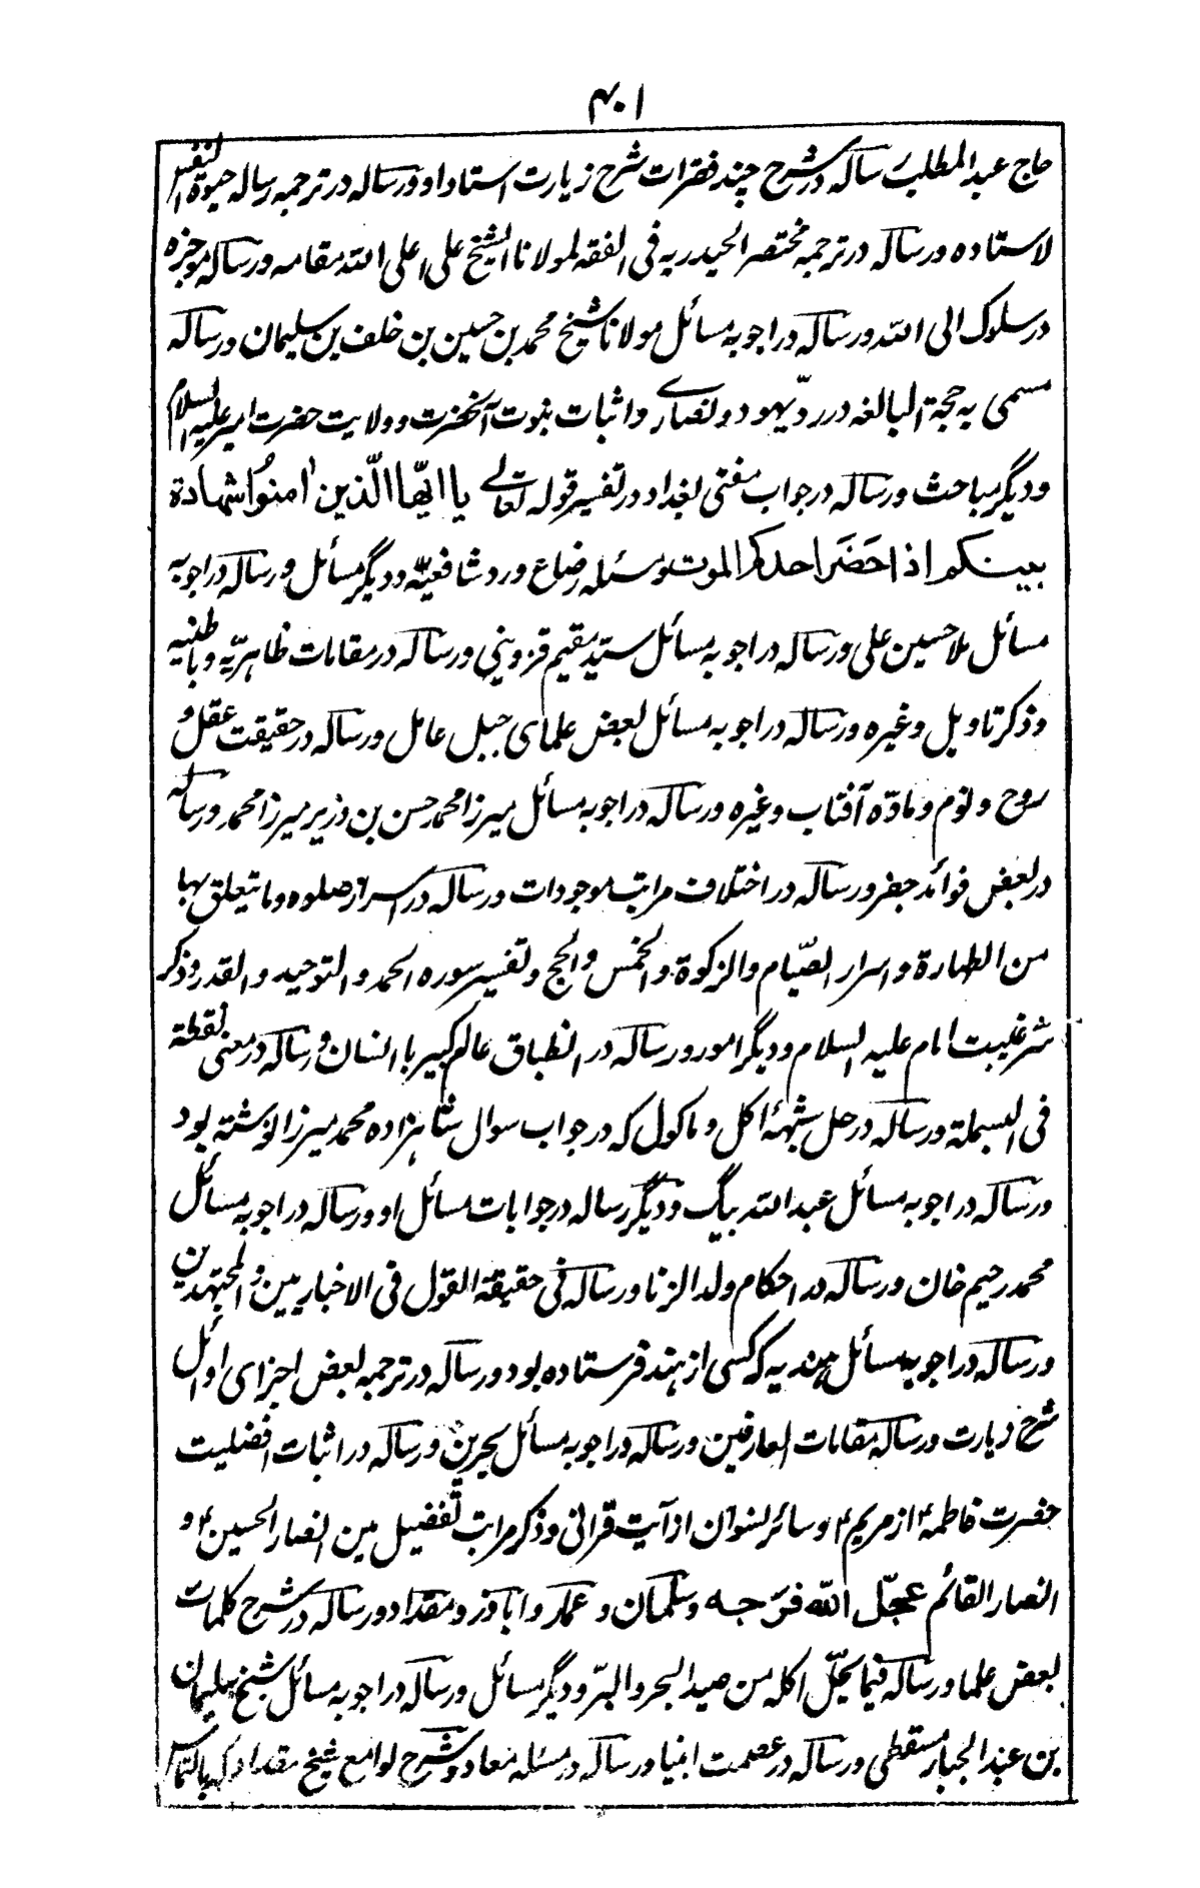 ۴۰۱
حاج عبدالمطلب رساله در شرح چند فقرات شرح زیارت استاد او ورساله در ترجمه رساله حیوة النفس
لاستاده ورساله در ترجمه مختصر الحیدریه فی الفقه لمولانا الشیخ علی اعلی الله مقامه ورساله موجزه
در سلوک الی الله ورساله در اجوبه مسائل مولانا شیخ محمد بن حسین بن خلف بن سلیمان ورساله
مسمی به حجة البالغه در ردّ یهود ونصاری واثبات نبوت آنحضرت وولایت حضرت امیر علیه السلام
ودیگر مباحث ورساله در جواب مفتی بغداد در تفسیر قوله تعالی یا ایّها الّذین اٰمنوُا شهادة
بینکم اذا حَضَرَ احدکم الموت ومسئله رضاع ورد شافعیّه ودیگر مسائل ورساله در اجوبه
مسائل ملا حسین علی ورساله در اجوبه مسائل سیّد مقیم قزوینی ورساله در مقامات ظاهریّه وباطنیه
وذکر تاویل وغیره ورساله در اجوبه مسائل بعض علمای جبل عامل ورساله در حقیقت عقل و
روح ونوم ومادّه آفتاب وغیره ورساله در اجوبه مسائل میرزا محمد حسن بن وزیر میرزا محمد ورساله
در بعض فوائد جفر ورساله در اختلاف مراتب موجودات ورساله در اسرار صلوه وما یتعلق بها
من الطهارة واسرار الصّیام والزکوة والخمس والحج وتفسیر سوره الحمد والتوحید والقدر وذکر
سّر غیبت امام علیه السلام ودیگر امور ورساله در انطباق عالم کبیر با انسان ورساله در معنی نقطة
فی البسملة ورساله در حل شبههٔ اکل وماکول که در جواب سوال شاهزاده محمد میرزا نوشته بود
ورساله در اجوبه مسائل عبدالله بیگ ودیگر رساله در جوابات مسائل او ورساله در اجوبه مسائل
محمد رحیم خان ورساله در احکام ولد الزنا ورساله فی حقیقة القول فی الاخباریین والمجتهدین
ورساله در اجوبه مسائل هندیه که کسی از هند فرستاده بود ورساله در ترجمه بعض اجزای اوائل
شرح زیارت ورساله مقامات العارفین ورساله در اجوبه مسائل بحرین ورساله در اثبات افضلیت
حضرت فاطمه ع از مریم ع وسائر نسوان از آیت قرانی وذکر مراتب تفضیل بین انصار الحسین ع و
انصار القائم عجّل الله فرجه وسلمان وعمار واباذر ومقداد ورساله در شرح کلمات
بعض علما ورساله فیما یحلّ اکله من صید البحر والبرّ ودیگر مسائل ورساله در اجوبه مسائل شیخ سلیمان
بن عبد الجبار مسقطی ورساله در عصمت انبیا ورساله در مسئله معاد وشرح لوامع شیخ مقداد که بالتماس